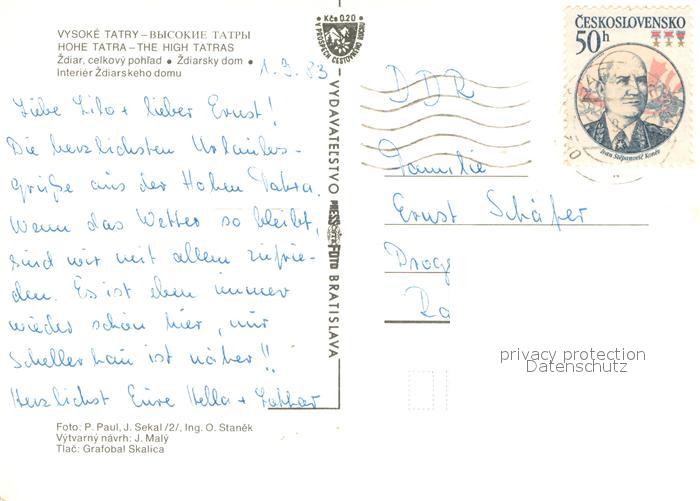 VYSOKÉ TATRY – ВЫСОКИЕ ТАТРЫ
HOHE TATRA – THE HIGH TATRAS
Ždiar, celkový pohľad • Ždiarsky dom •
Interiér Ždiarskeho domu
1.3.83
Liebe Lilo + lieber Ernst!
Die herzlichsten Urlaubs-
grüße aus der Hohen Tatra.
Wenn das Wetter so bleibt,
sind wir mit allem zufrie-
den. Es ist eben immer
wieder schön hier, nur
Schellerhau ist näher!!
Herzlichst Eure Hella + Lothar
Foto: P. Paul, J. Sekal /2/, Ing. O. Staněk
Výtvarný návrh: J. Malý
Tlač: Grafobal Skalica
Kčs 0.20
V PROSPECH CESTOVNÉHO RUCHU
VYDAVATEĽSTVO PRESSFOTO BRATISLAVA
ČESKOSLOVENSKO
50h
Ivan Stěpanovič Koněv
DDR
Familie
Ernst Schäfer
Drog
Ra
privacy protection
Datenschutz